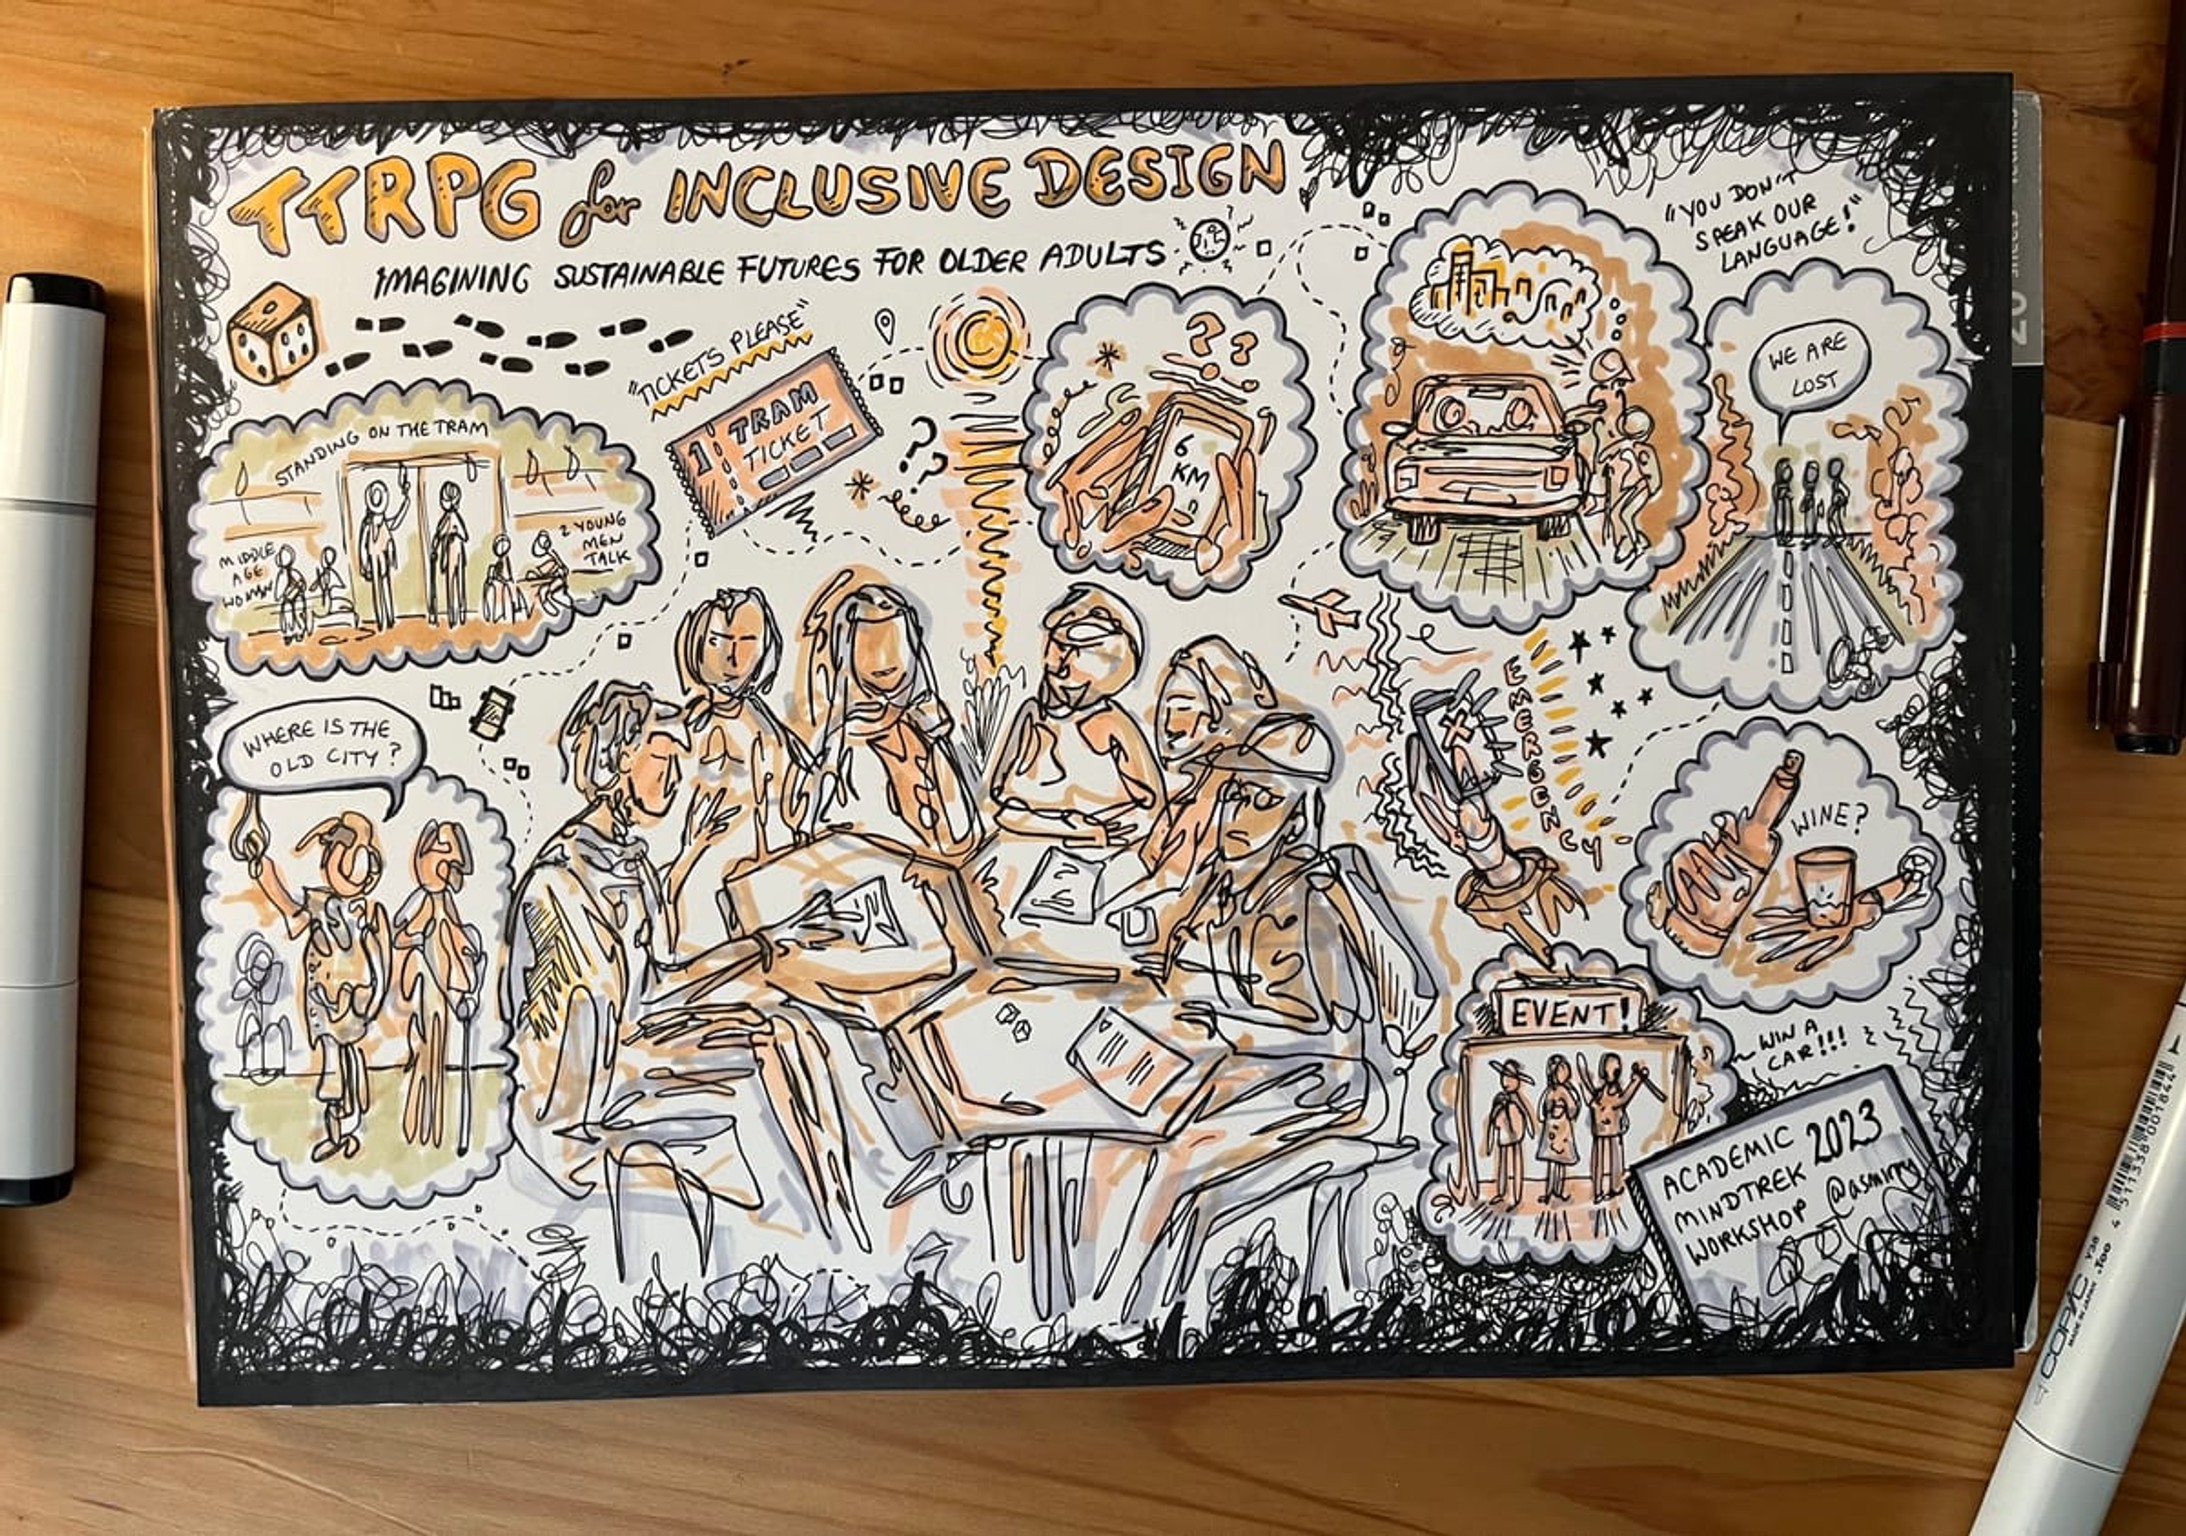 TTRPG for INCLUSIVE DESIGN
IMAGINING SUSTAINABLE FUTURES FOR OLDER ADULTS
"TICKETS PLEASE"
1 TRAM
TICKET
STANDING ON THE TRAM
MIDDLE
AGE
WOMAN
2 YOUNG
MEN
TALK
WHERE IS THE
OLD CITY?
??
??
6
KM
"YOU DON'T
SPEAK OUR
LANGUAGE!"
WE ARE
LOST
EMERGENCY
WINE?
EVENT!
WIN A
CAR!!!
ACADEMIC
MINDTREK 2023
WORKSHOP @asmirry
COPIC
Y38
.Too
4 511338 001844